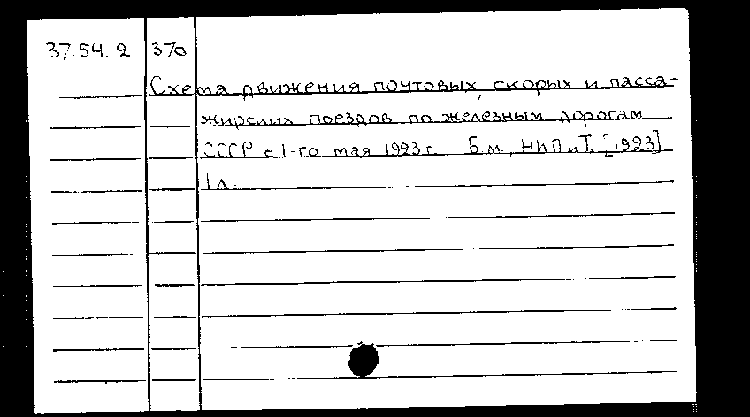 37.54.2 370
Схема движения почтовых, скорых и пасса-
жирских поездов по железным дорогам
СССР с 1-го мая 1923 г. Б.м., НКП и.Т. [1923]
1 л.